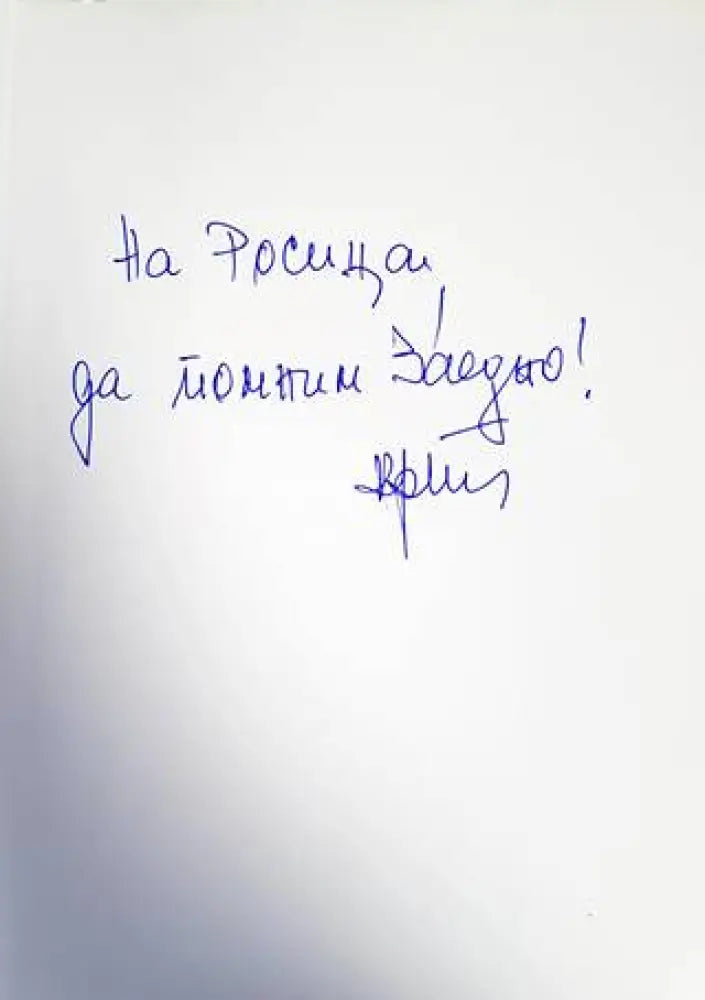 На Росица,
да помним заедно!